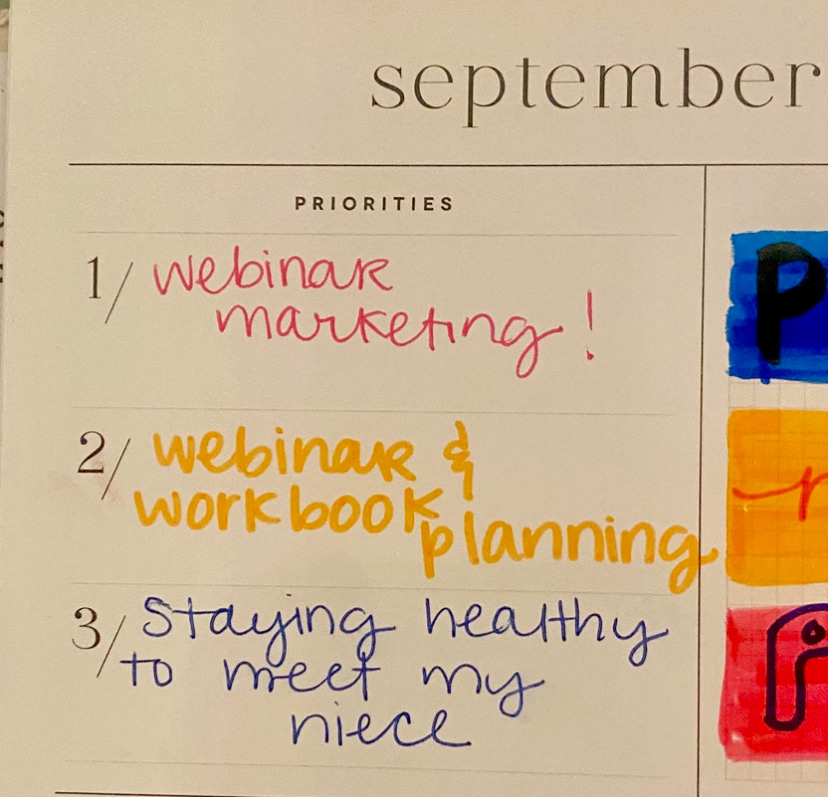 september
PRIORITIES
1/ webinar
marketing!
2/ webinar &
workbook
planning
3/ staying healthy
to meet my
niece
P